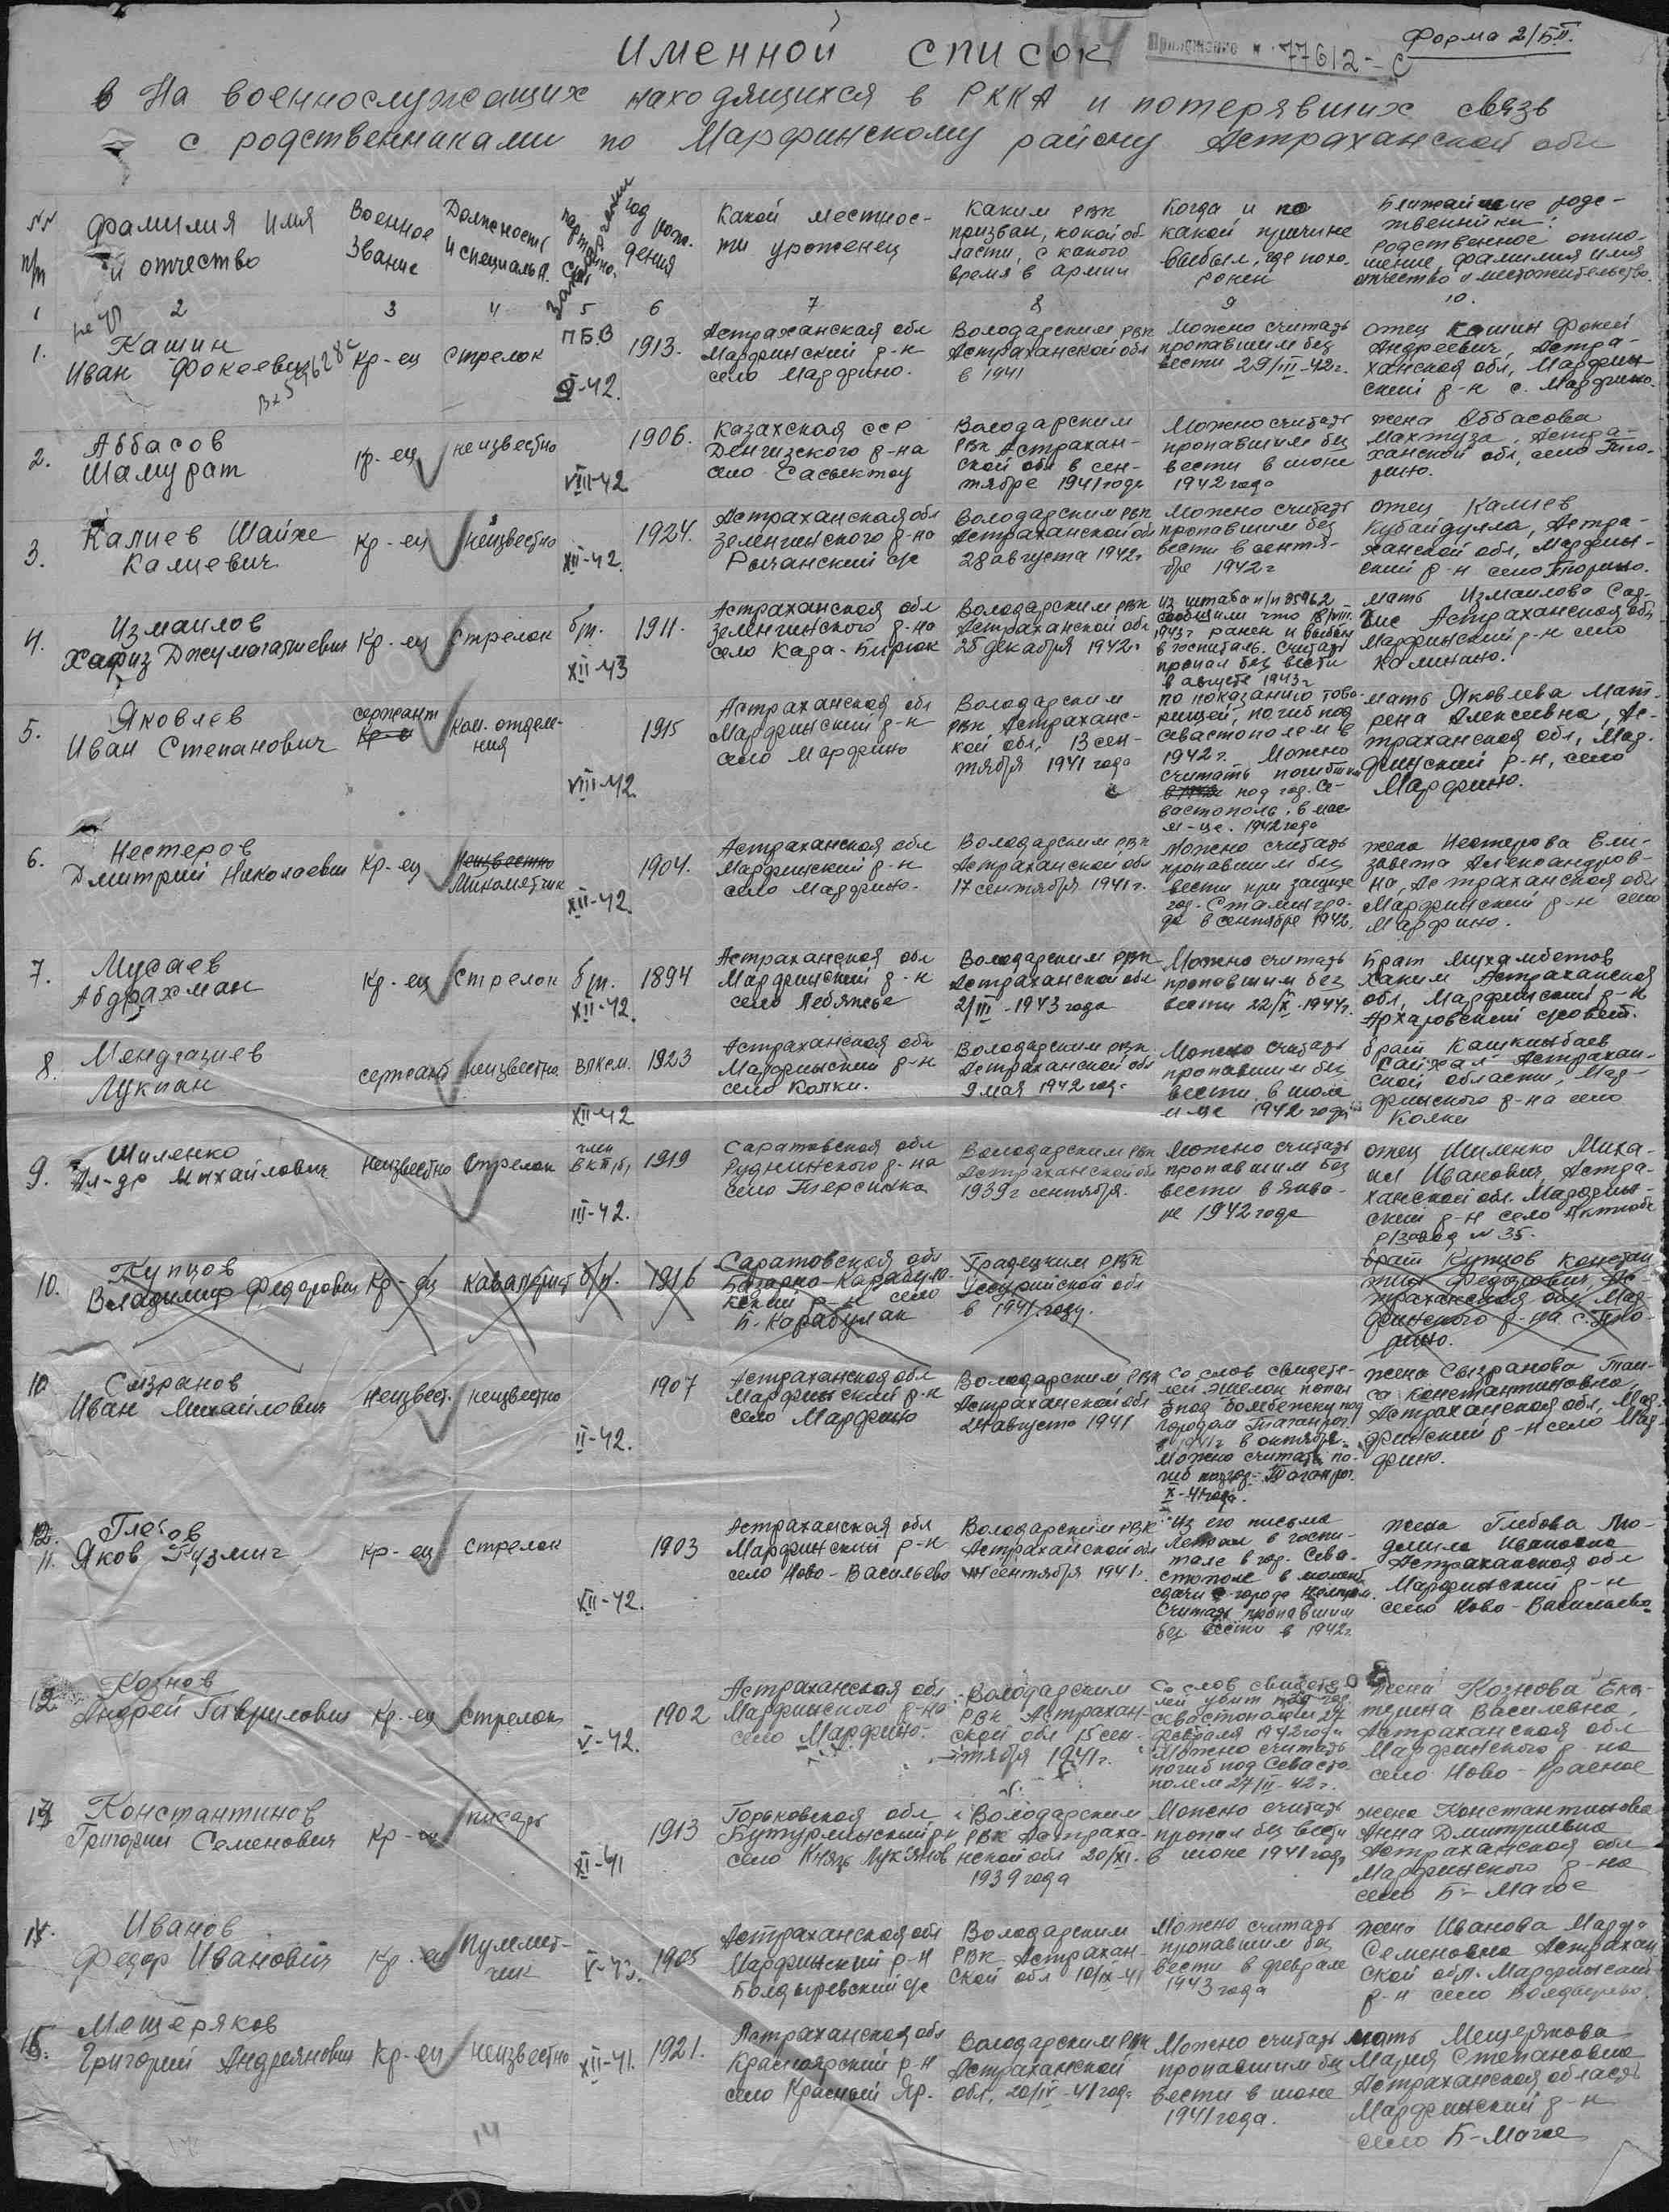 Именной список
Приложение к 77612-с
Форма 2/БП.
На военнослужащих находящихся в РККА и потерявших связь
с родственниками по Марфинскому району Астраханской обл
№№ п/п
Фамилия имя и отчество
Военное звание
Должность и специальн.
партийно.
год рождения
Какой местности уроженец
Каким РВК призван, какой области, с какого время в армии
Когда и по какой причине выбыл, где похоронен
Ближайшие родственники: родственное отношение, фамилия имя отчество и местожительство.
1 2 3 4 5 6 7 8 9 10.
1. Кашин
Иван Фокеевич
Кр-ец
Стрелок
ПБВ
1913.
Астраханская обл
Марфинский р-н
село Марфино.
Володарским РВК
Астраханской обл
в 1941
Можно считать
пропавшим без
вести 29/III-42г.
отец Кашин Фокей
Андреевич, Астра-
ханская обл, Марфин-
ский р-н с. Марфино.
2. Аббасов
Шамурат
кр-ец
неизвестно
VIII-42
1906.
Казахская ССР
Денгизского р-на
село Сасыктау
Володарским
РВК Астрахан-
ской обл в сен-
тябре 1941 года
Можно считать
пропавшим без
вести в июне
1942 года
жена Аббасова
Махтуза, Астра-
ханской обл, село Тю-
рино.
3. Калиев Шайхе
Калиевич
Кр-ец
неизвестно
XII-42.
1924.
Астраханская обл
Зеленгинского р-на
Рычанский с/с
Володарским РВК
Астраханской обл
28 августа 1942г
Можно считать
пропавшим без
вести в сентя-
бре 1942г
отец Калиев
Кубайдулла, Астра-
ханской обл, Марфин-
ский р-н село Тюрино.
4. Измаилов
Хафиз Джумагазиевич
Кр-ец
Стрелок
б/п.
XII-43
1911.
Астраханская обл
Зеленгинского р-на
село Кара-Бирюк
Володарским РВК
Астраханской обл
25 декабря 1942г
Из штаба п/п 85962
сообщили что 18/VIII.
1943г ранен и выбыл
в госпиталь. Считать
пропал без вести
в августе 1943г
мать Измаилова
Астраханская обл,
Марфинский р-н село
Калинино.
5. Яковлев
Иван Степанович
сержант
Ком. отделе-
ния
VIII-42.
1915
Астраханская обл
Марфинский р-н
село Марфино
Володарским
РВК, Астраханс-
кой обл, 13 сен-
тября 1941 года
по показанию това-
рищей, погиб под
Севастополем в
1942г. Можно
считать погибшим
под гор. Се-
вастополь, в мае
м-це. 1942 года
мать Яковлева Мат-
рена Алексеевна, Ас-
траханская обл, Мар-
финский р-н, село
Марфино.
6. Нестеров
Дмитрий Николаевич
Кр-ец
Неизвестно
Минометчик
XII-42.
1904.
Астраханская обл
Марфинский р-н
село Марфино.
Володарским РВК
Астраханской обл
17 сентября 1941г.
Можно считать
пропавшим без
вести при защите
гор. Сталингра-
да в сентябре 1942.
жена Нестерова Ели-
завета Александров-
на, Астраханская обл
Марфинский р-н село
Марфино.
7. Мусаев
Абдрахман
Кр-ец
Стрелок
б/п.
XII-42.
1894
Астраханская обл
Марфинский р-н
село Лебяжье
Володарским РВК
Астраханской обл
2/III-1943 года
Можно считать
пропавшим без
вести 22/X-1944г.
Брат Мухамбетов
Хаким Астраханская
обл, Марфинский р-н
Архаровский с/совет.
8. Мендгазиев
Лукпан
сержант
неизвестно.
ВЛКСМ.
XII-42
1923
Астраханская обл
Марфинский р-н
село Колки.
Володарским РВК
Астраханской обл
9 мая 1942 год.
Можно считать
пропавшим без
вести в июле
м-це 1942 года
брат Кашкинбаев
Сайхал Астрахан-
ской области, Мар-
финского р-на село
Колки
9. Шиленко
Ал-др Михайлович
Неизвестно
Стрелок
член
ВКП(б)
III-42.
1919
Саратовская обл
Руднинского р-на
село Терсинка
Володарским РВК
Астраханской обл
1939г сентября.
Можно считать
пропавшим без
вести в янва-
ре 1942 года
отец Шиленко Миха-
ил Иванович, Астра-
ханской обл. Марфин-
ский р-н село Актюбе
р/завод № 35.
10. Купцов
Владимир Федорович
Кр-ец
Кавалерист
б/п.
1916
Саратовская обл
Базарно-Карабула-
кский р-н село
Б-Карабулак
Градецким РВК
Уссурийской обл
в 1941 году.
брат Купцов Констан
тин Федорович, Ас-
траханская обл Мар-
финского р-на с. Тю-
рино.
10 Сызранов
Иван Михайлович
Неизвест.
Неизвестно
II-42.
1907
Астраханская обл
Марфинский р-н
село Марфино
Володарским РВК
Астраханской обл
24 августа 1941
Со слов свидете-
лей эшелон попал
под бомбежку под
городом Таганрог.
в 1941г в октябре.
Можно считать по-
гиб под гор. Таганрог.
X-41 года.
жена Сызранова Таи-
са Константиновна,
Астраханская обл, Мар-
финский р-н село Мар-
фино.
11. Глебов
Яков Кузмич
Кр-ец
Стрелок
VII-42.
1903
Астраханская обл
Марфинский р-н
село Ново-Васильево
Володарским РВК
Астраханской обл
сентября 1941г.
Из его письма
лежал в госпи-
тале в гор. Сева-
стополе в момент
сдачи города
Считать пропавшим
без вести в 1942г.
Жена Глебова Лю-
дмила Ивановна
Астраханская обл
Марфинский р-н
село Ново-Васильево.
12. Кознов
Андрей Гаврилович
Кр-ец
Стрелок
V-42.
1902
Астраханская обл
Марфинского р-на
село Марфино.
Володарским
РВК Астрахан-
ской обл 15 сен-
тября 1941г.
Со слов свидете-
лей убит под гор.
Севастополем 27
февраля 1942 года
Можно считать
погиб под Севасто-
полем 27/II-42г.
жена Кознова Ека-
терина Василевна,
Астраханская обл
Марфинского р-на
село Ново-Красное
13. Константинов
Григорий Семенович
Кр-ец
писарь
XI-41
1913
Горьковская обл
Бутурлинский р-н
село Князь Лукьянов
Володарским
РВК Астраха-
нской обл 20/XI.
1939 года
Можно считать
пропал без вести
в июне 1941 года
жена Константинова
Анна Дмитриевна
Астраханская обл
Марфинского р-на
село Б-Магое
14. Иванов
Федор Иванович
Кр-ец
Пулемет-
чик
V-43.
1905
Астраханская обл
Марфинский р-н
Болдыревский с/с
Володарским
РВК Астрахан-
ской обл 10/IX-41
Можно считать
пропавшим без
вести в феврале
1943 года
жена Иванова Марфа
Семеновна Астрахан
ской обл. Марфинский
р-н село Болдырево.
15. Мещеряков
Григорий Андреянович
Кр-ец
Неизвестно
XII-41.
1921.
Астраханская обл
Красноярский р-н
село Красный Яр.
Володарским РВК
Астраханской
обл, 20/IV-41 года
Можно считать
пропавшим без
вести в июне
1941 года.
мать Мещерякова
Мария Степановна
Астраханская область
Марфинский р-н
село Б-Могое
14